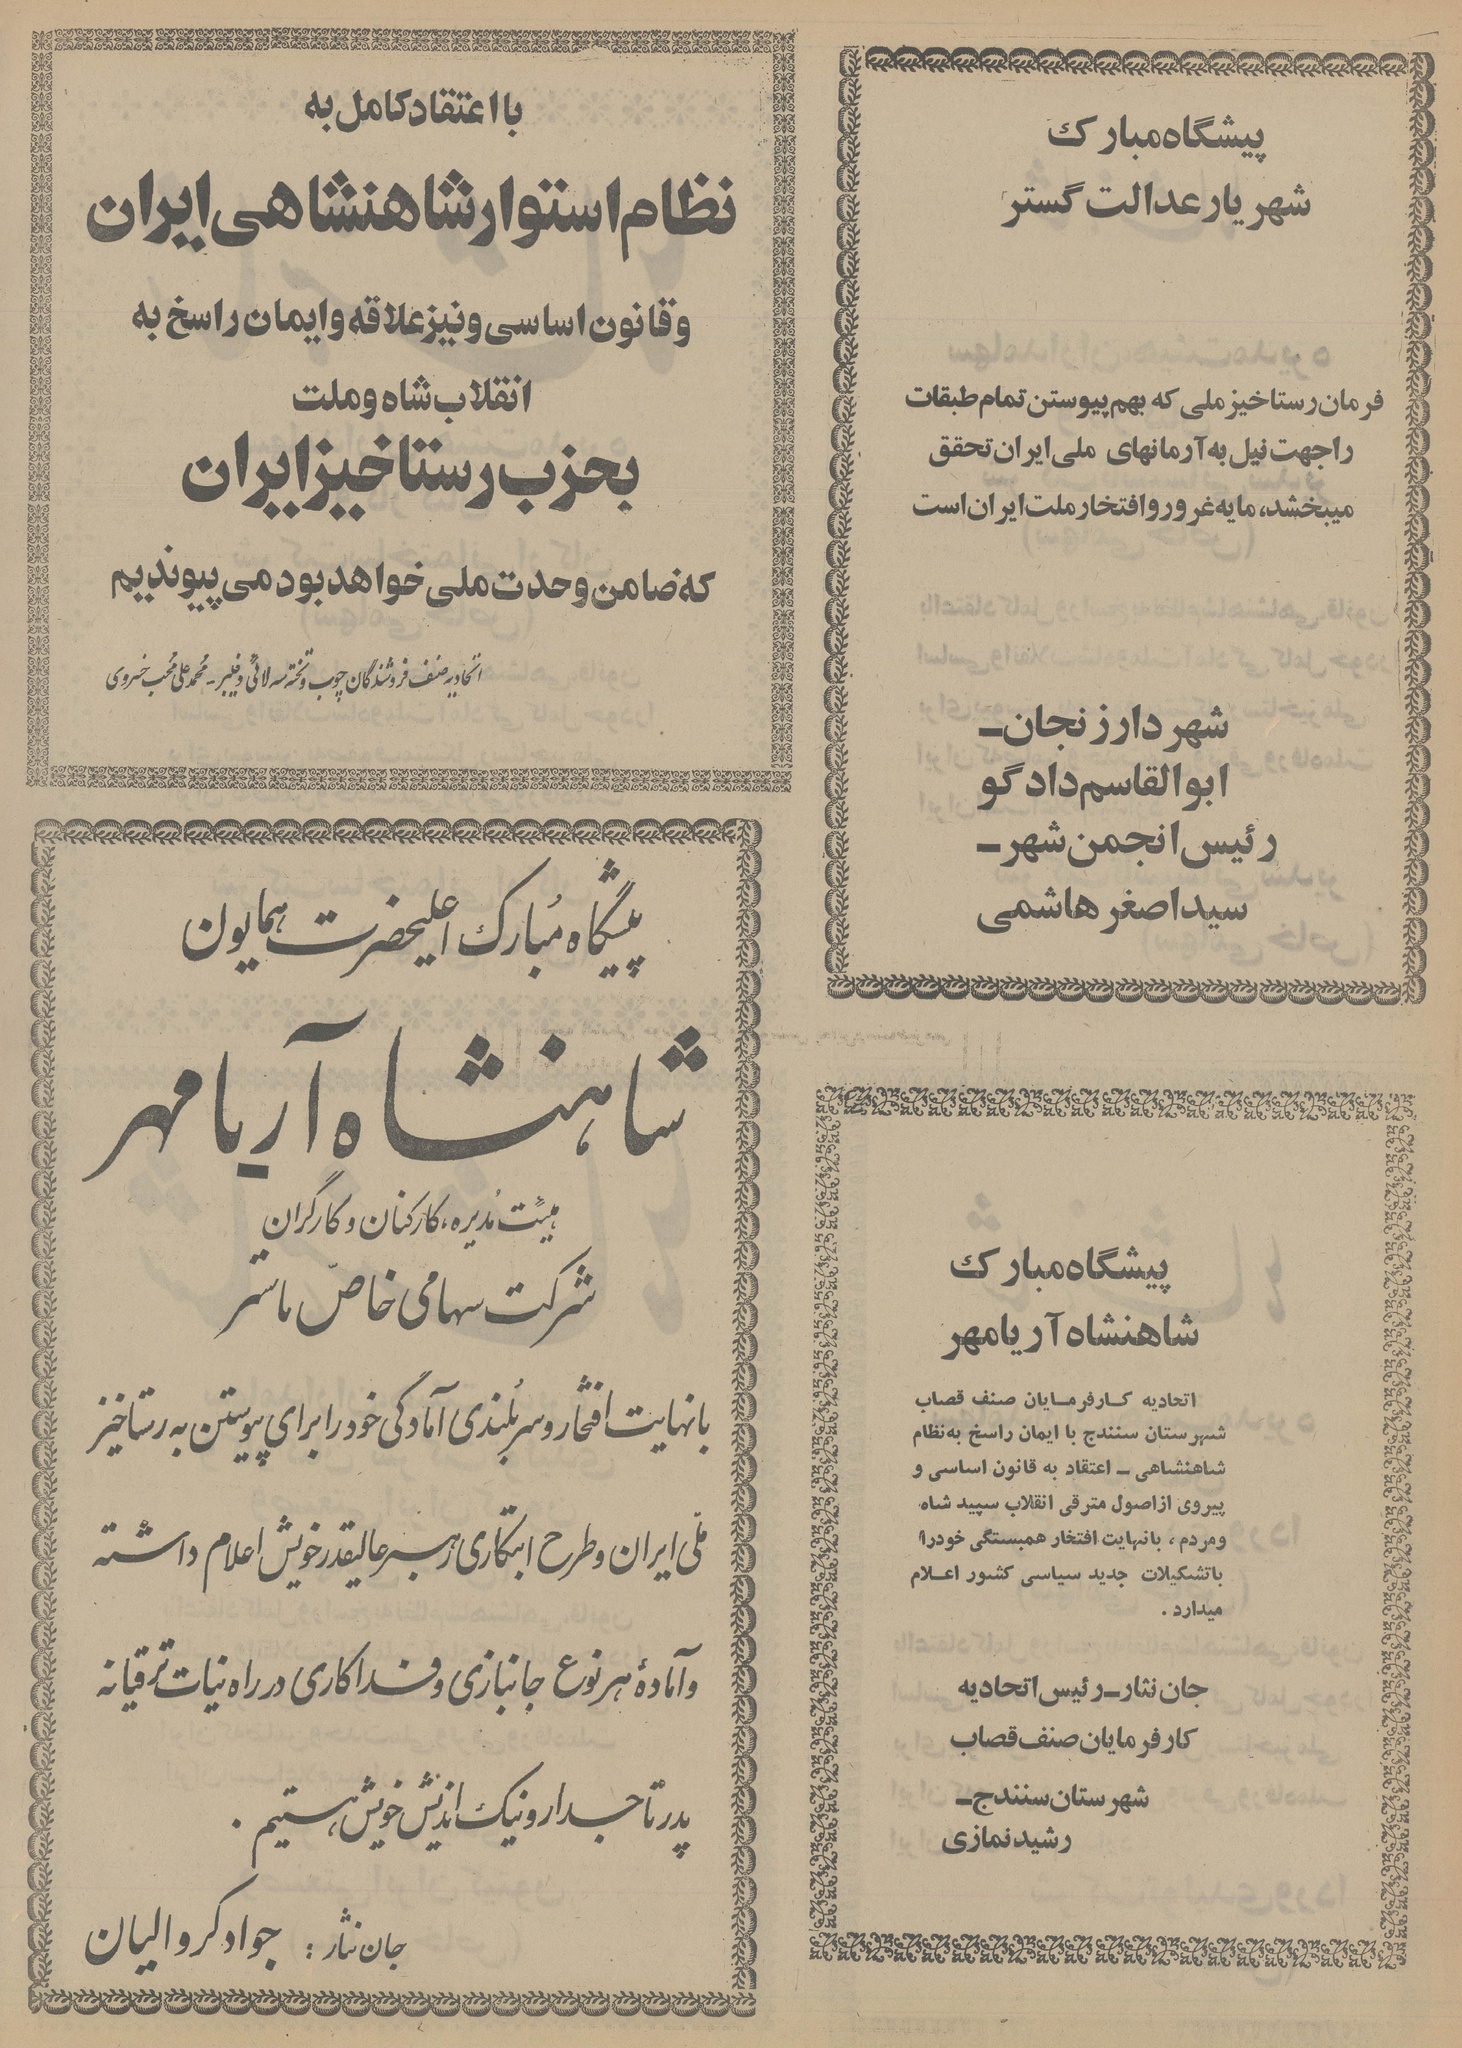 پیشگاه مبارک
شهریار عدالت گستر
فرمان رستاخیز ملی که بهم پیوستن تمام طبقات
را جهت نیل به آرمانهای ملی ایران تحقق
میبخشد، مایه غرور و افتخار ملت ایران است
شهردار زنجان_
ابوالقاسم دادگو
رئیس انجمن شهر_
سید اصغر هاشمی
با اعتقاد کامل به
نظام استوار شاهنشاهی ایران
و قانون اساسی و نیز علاقه و ایمان راسخ به
انقلاب شاه و ملت
بحزب رستاخیز ایران
که ضامن وحدت ملی خواهد بود می پیوندیم
اتحادیه صنف فروشندگان چوب و تخته سه لائی و فیبر_ محمد علی محب خسروی
پیشگاه مبارک
شاهنشاه آریامهر
اتحادیه کارفرمایان صنف قصاب
شهرستان سنندج با ایمان راسخ به نظام
شاهنشاهی _ اعتقاد به قانون اساسی و
پیروی از اصول مترقی انقلاب سپید شاه
و مردم ، با نهایت افتخار همبستگی خود را
با تشکیلات جدید سیاسی کشور اعلام
میدارد .
جان نثار_رئیس اتحادیه
کارفرمایان صنف قصاب
شهرستان سنندج_
رشید نمازی
پیشگاه مُبارک اعلیحضرت همایون
شاهنشاه آریامهر
هیئت مُدیره، کارکنان و کارگران
شرکت سهامی خاصّ ماستر
با نهایت افتخار و سربُلندی آمادگی خود را برای پیوستن به رستاخیز
ملّی ایران و طرح ابتکاری رهبر عالیقدر خویش اعلام داشته
و آمادهٔ هر نوع جانبازی و فداکاری در راه نیات ترقیانه
پدر تاجدار و نیک اندیش خویش هستیم .
جان نثار : جواد کروالیان